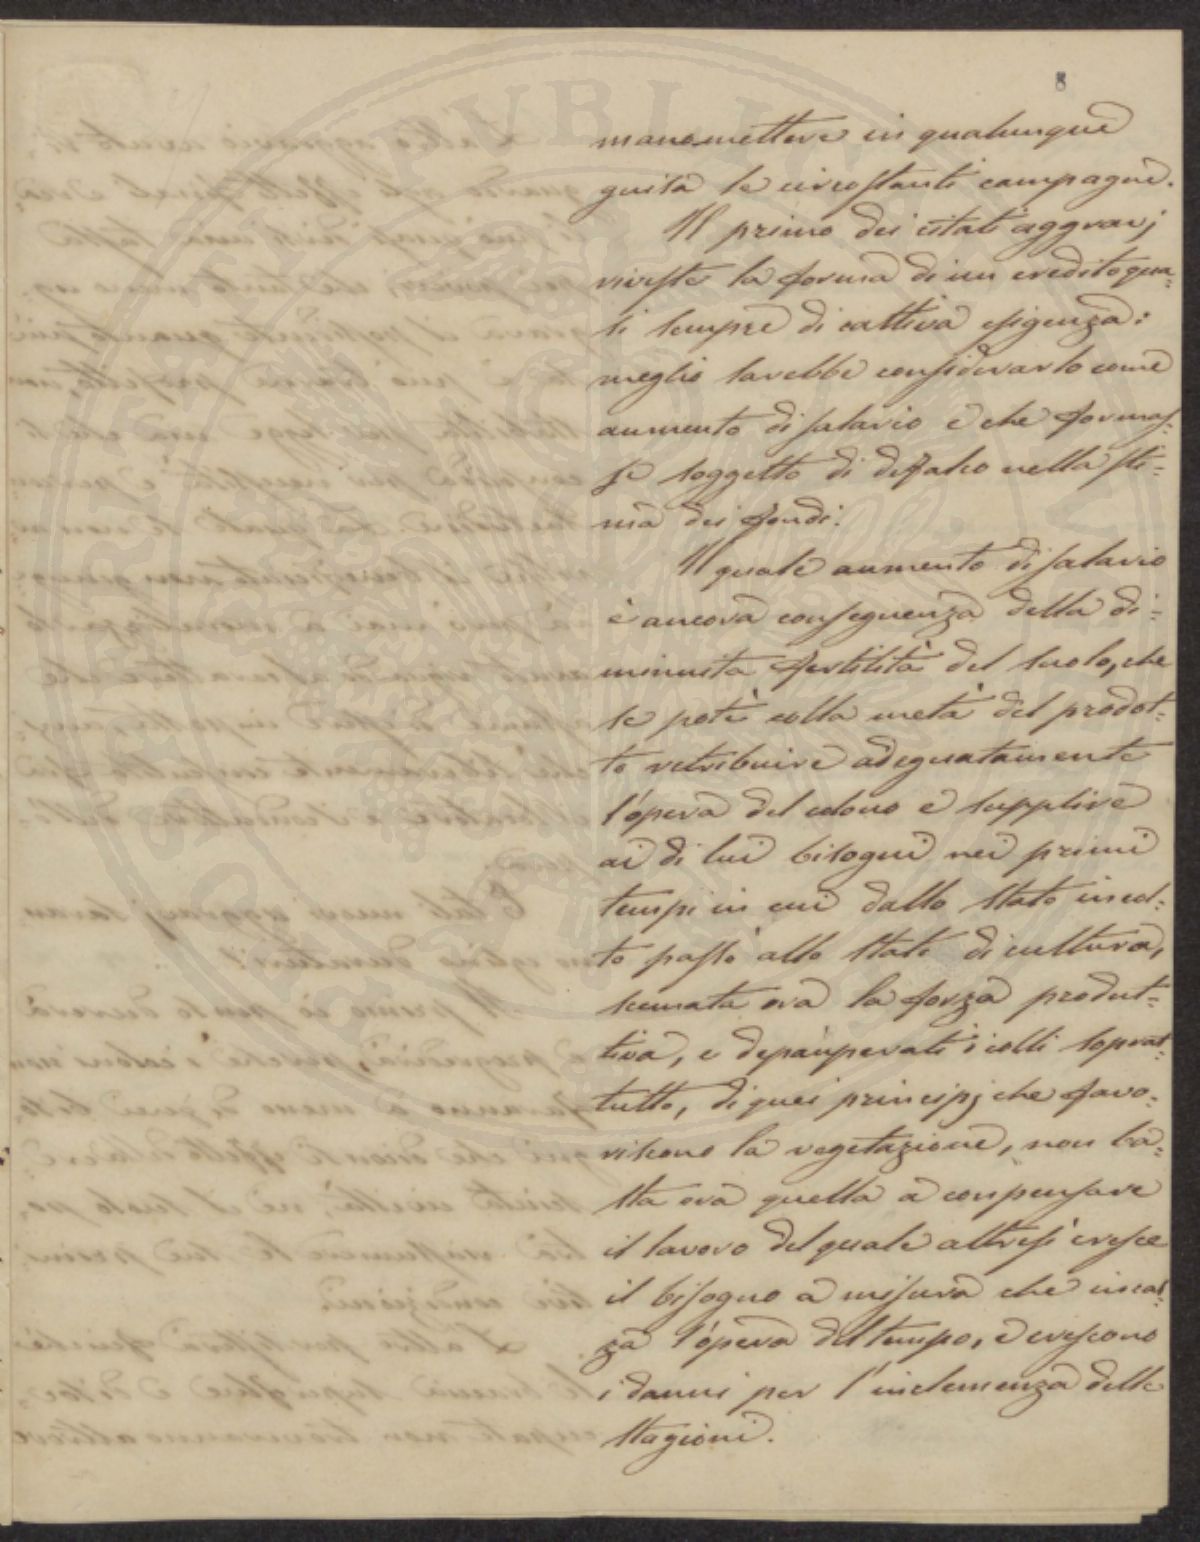 8
manomettere in qualunque
guisa le circostanti campagne.
Il primo dei citati aggravj
riveste la forma di un credito qua-
si sempre di cattiva esigenza:
meglio sarebbe considerarlo come
aumento di salario e che formas-
se soggetto di difalco nella sti-
ma dei fondi.
Il quale aumento di salario
è ancora conseguenza della di-
minuita fertilità del suolo, che
se potè colla metà del prodot-
to retribuire adeguatamente
l'opera del colono e supplire
ai di lui bisogni nei primi
tempi in cui dallo stato incol-
to passò allo stato di cultura,
scemata ora la forza produt-
tiva, e depauperati i colli soprat-
tutto, di quei principj che favo-
riscono la vegetazione, non ba-
sta ora quella a conpensare
il lavoro del quale altresì cresce
il bisogno a misura che incal-
za l'opera del tempo, e crescono
i danni per l'inclemenza delle
stagioni.